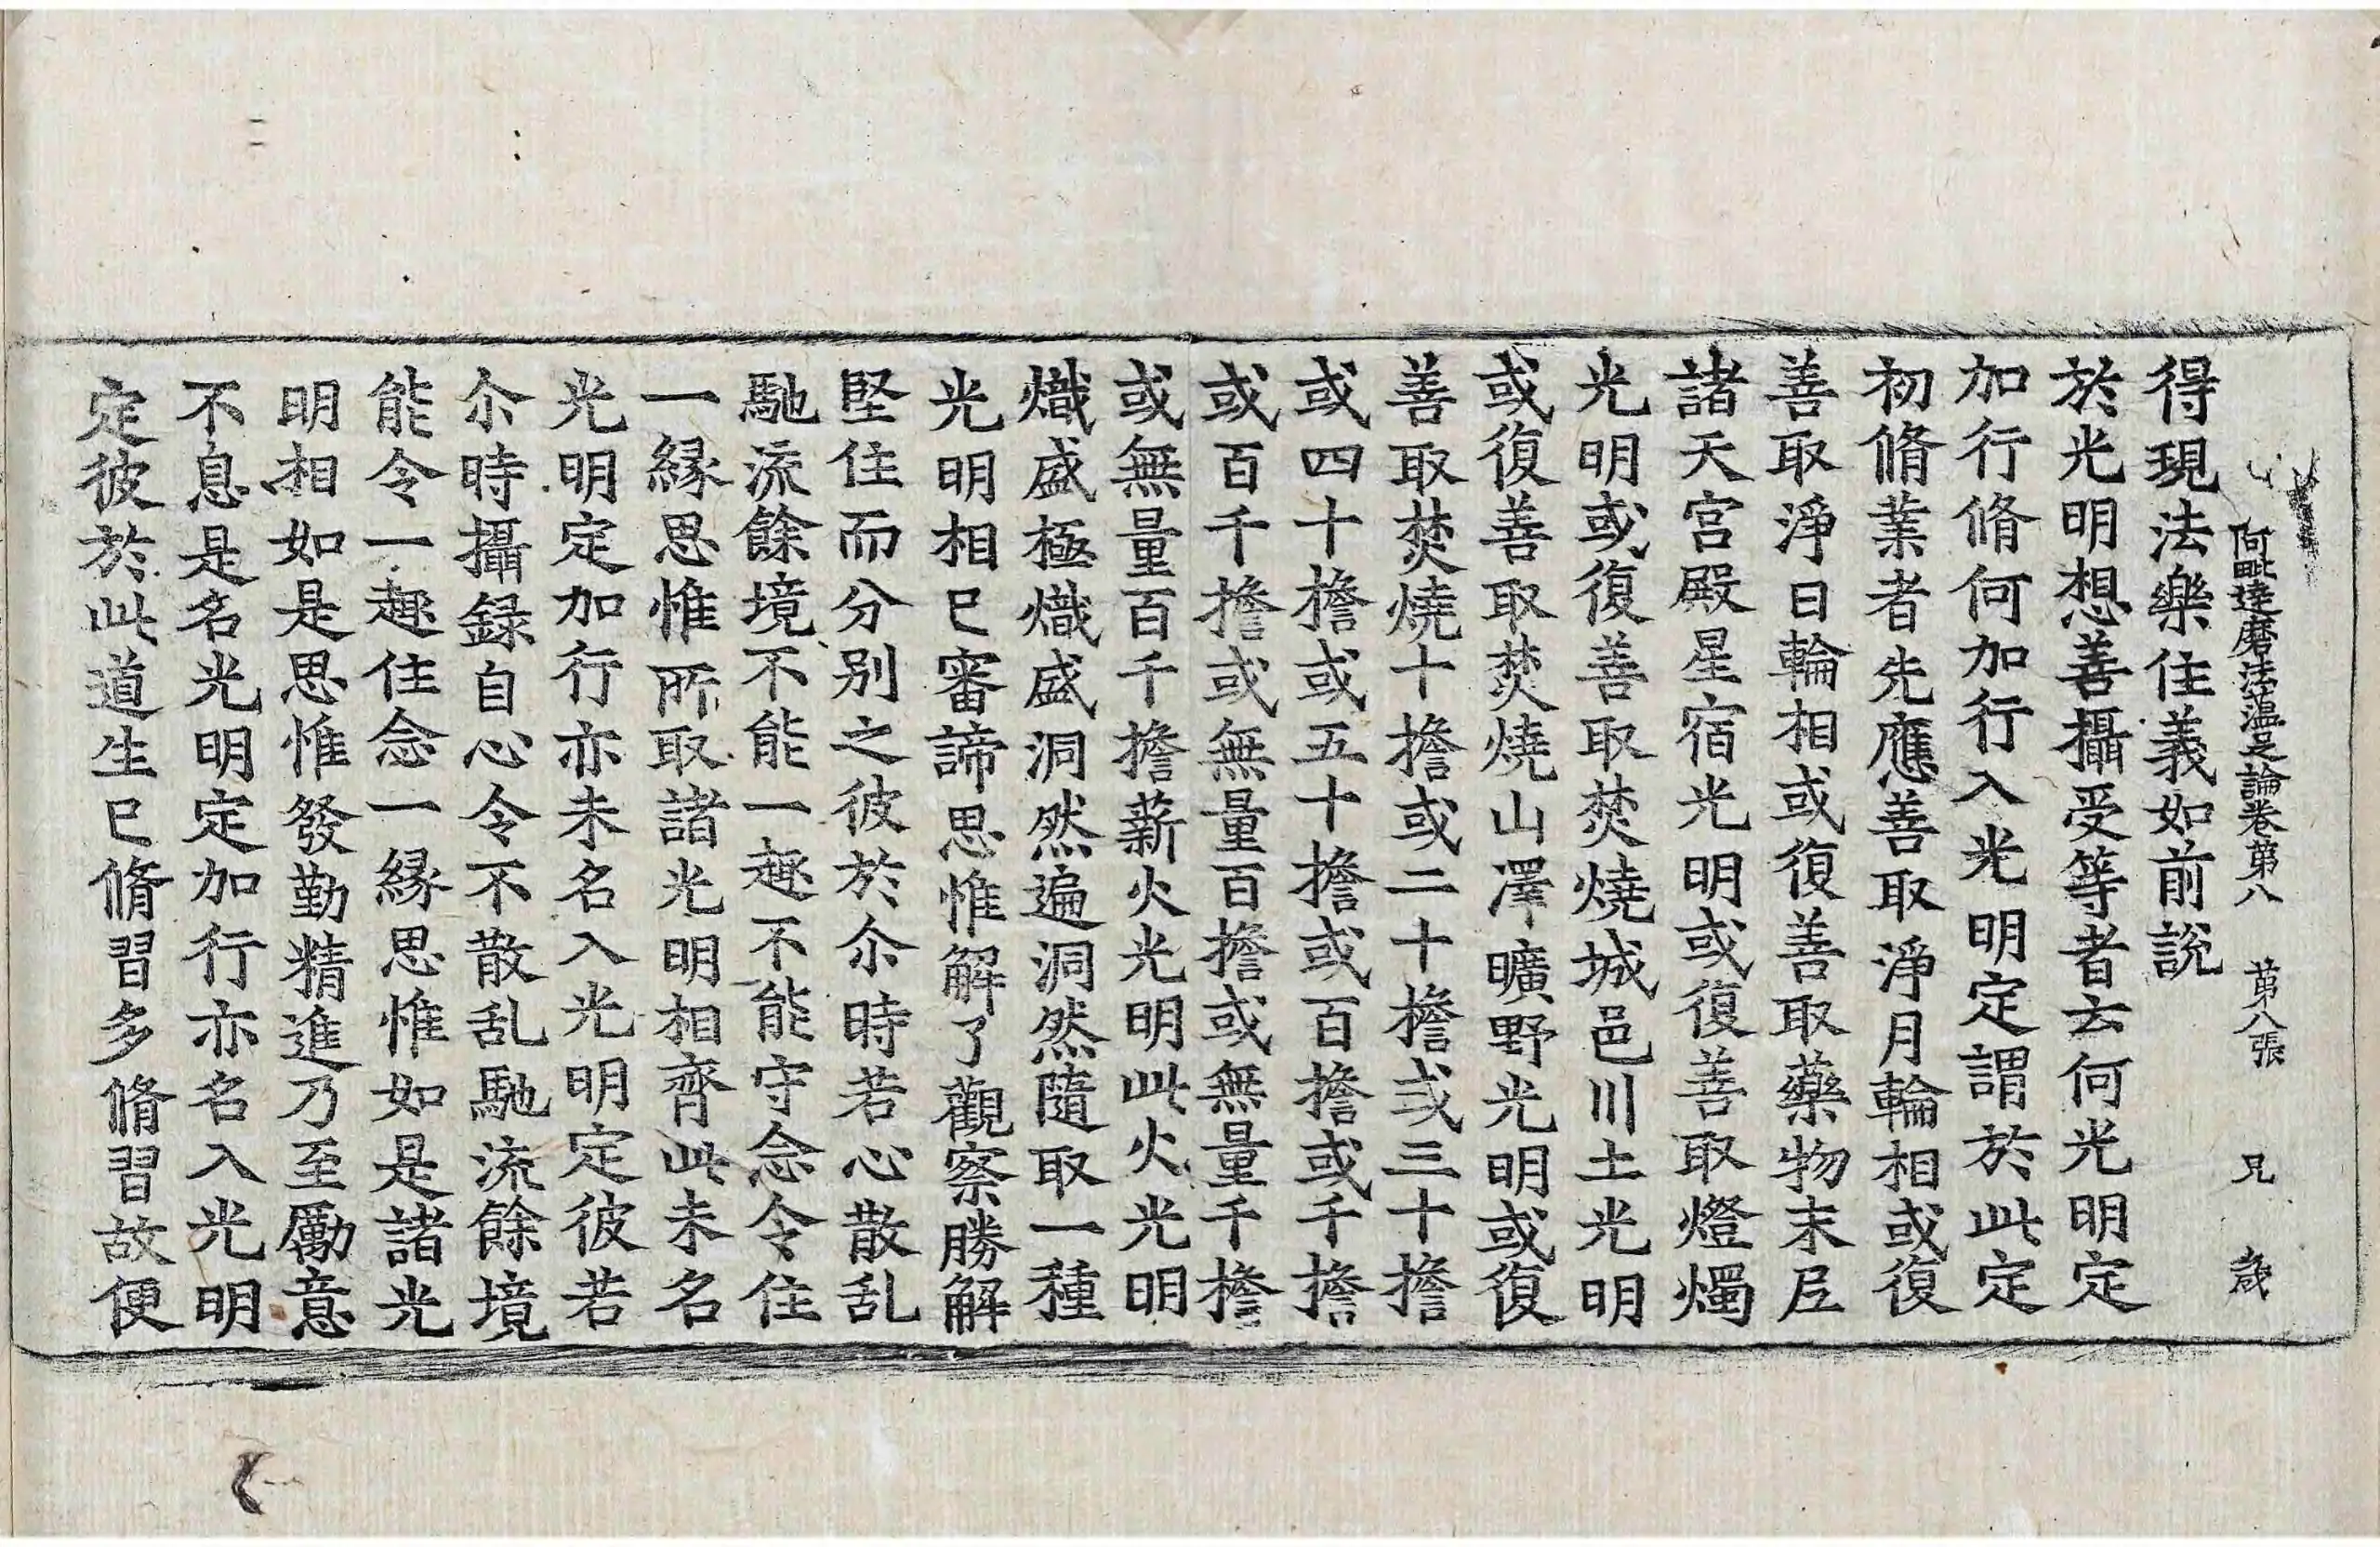 阿毗達磨法蘊足論卷第八 第八張 兄 歲
得現法樂住義如前說
於光明想善攝受等者云何光明定
加行脩何加行入光明定謂於此定
初脩業者先應善取淨月輪相或復
善取淨日輪相或復善取藥物末尼
諸天宮殿星宿光明或復善取燈燭
光明或復善取焚燒城邑川土光明
或復善取焚燒山澤曠野光明或復
善取焚燒十擔或二十擔或三十擔
或四十擔或五十擔或百擔或千擔
或百千擔或無量百擔或無量千擔
或無量百千擔薪火光明此火光明
熾盛極熾盛洞然遍洞然隨取一種
光明相已審諦思惟解了觀察勝解
堅住而分別之彼於尒時若心散乱
馳流餘境不能一趣不能守念令住
一緣思惟所取諸光明相齊此未名
光明定加行亦未名入光明定彼若
尒時攝録自心令不散乱馳流餘境
能令一趣住念一緣思惟如是諸光
明相如是思惟發勤精進乃至勵意
不息是名光明定加行亦名入光明
定彼於此道生已脩習多脩習故便